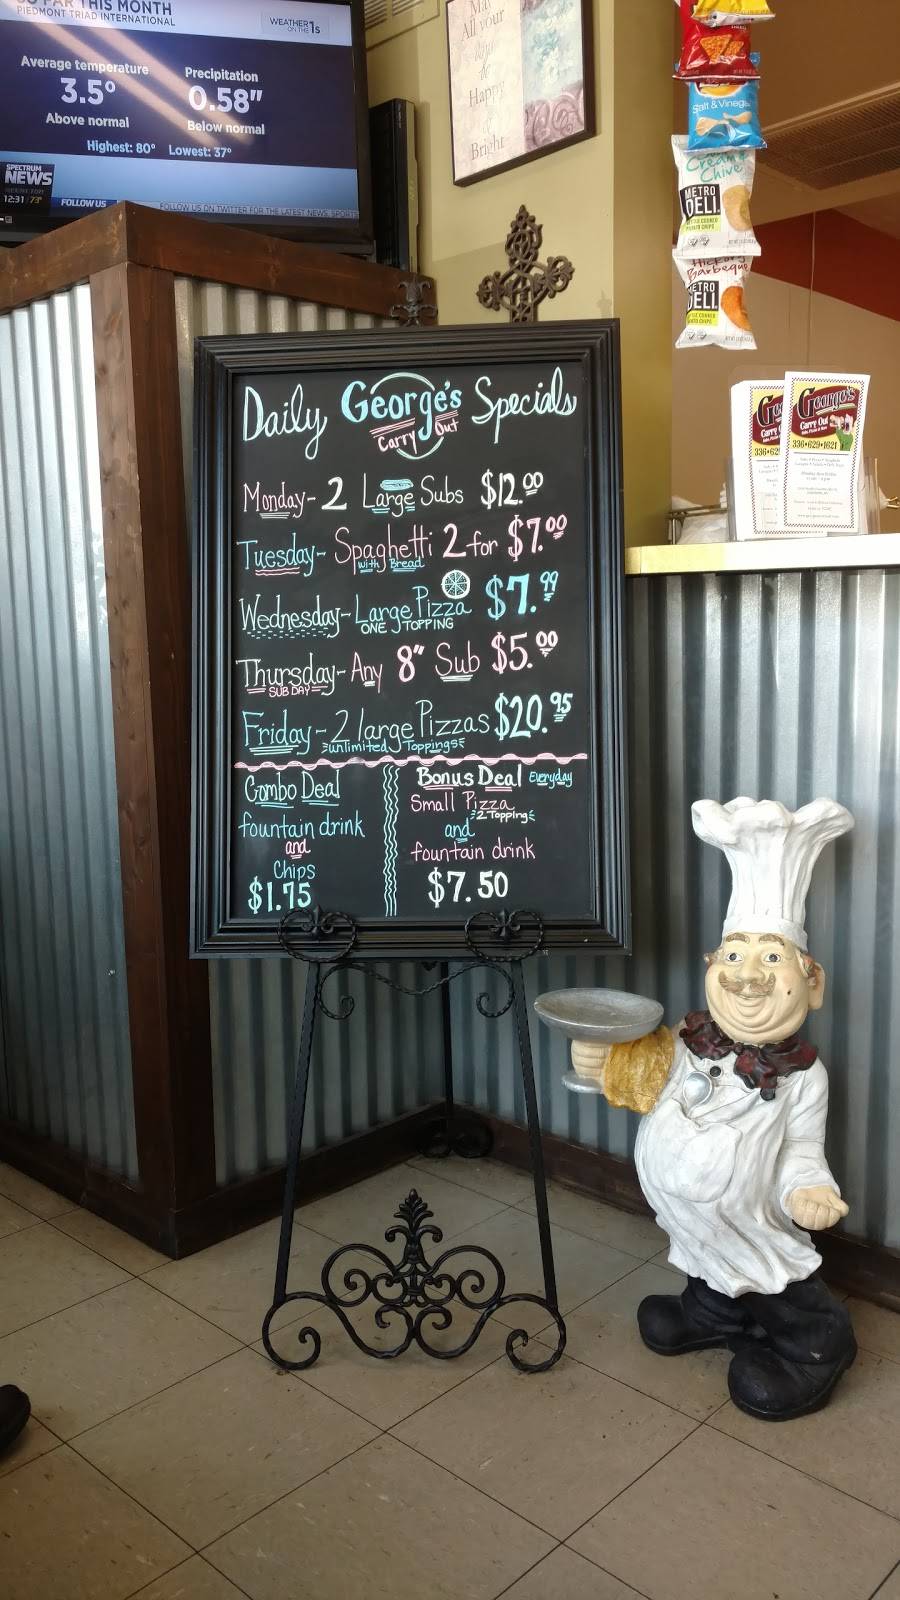 SO FAR THIS MONTH
PIEDMONT TRIAD INTERNATIONAL
WEATHER
ON THE 1s
Average temperature
3.5°
Above normal
Precipitation
0.58"
Below normal
Highest: 80° Lowest: 37°
SPECTRUM
NEWS
12:31 73°
FOLLOW US
FOLLOW US ON TWITTER FOR THE LATEST NEWS, SPORTS
May
All your
days
be
Happy
&
Bright
Salt & Vinegar
Cream &
Chive
METRO
DELI
Hickory
Barbeque
METRO
DELI
George's
Carry Out
336-629-1621
Daily George's Specials
Carry Out
Monday - 2 Large Subs $12.00
Tuesday - Spaghetti 2 for $7.00
with Bread
Wednesday - Large Pizza $7.99
ONE TOPPING
Thursday - Any 8" Sub $5.00
SUB DAY
Friday - 2 large Pizzas $20.95
unlimited Toppings
Combo Deal
fountain drink
and
Chips
$1.75
Bonus Deal Everyday
Small Pizza
2 Topping
and
fountain drink
$7.50